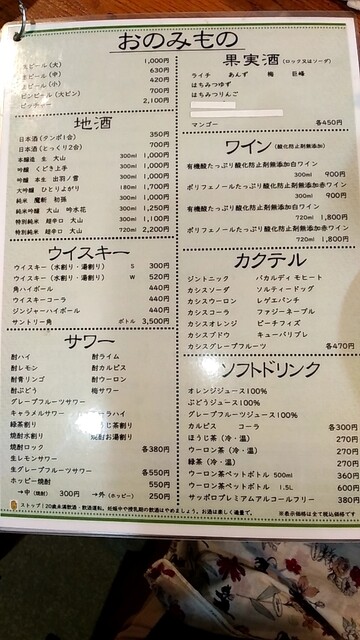 おのみもの
生ビール(大) 1,000円
生ビール(中) 630円
生ビール(小) 420円
ビンビール(大ビン) 700円
ピッチャー 2,100円
地酒
日本酒(タンポ1合) 350円
日本酒(とっくり2合) 700円
本醸造 生 大山 300ml 1,000円
吟醸 くどき上手 300ml 1,000円
吟醸 本生 出羽ノ雪 300ml 1,000円
大吟醸 ひとりよがり 180ml 1,700円
純米 魔斬 初孫 300ml 1,000円
純米吟醸 大山 吟水花 300ml 1,250円
特別純米 超辛口 大山 300ml 1,100円
特別純米 超辛口 大山 720ml 2,200円
ウイスキー
ウイスキー(水割り・湯割り) S 300円
ウイスキー(水割り・湯割り) W 520円
角ハイボール 440円
ウイスキーコーラ 440円
ジンジャーハイボール 440円
サントリー角 ボトル 3,500円
サワー
酎ハイ 酎ライム
酎レモン 酎カルピス
酎青リンゴ 酎ウーロン
酎ぶどう 梅サワー
グレープフルーツサワー
キャラメルサワー コーラハイ
緑茶割り ほうじ茶割り
焼酎水割り 焼酎お湯割り
焼酎ロック 各380円
生レモンサワー
生グレープフルーツサワー 各550円
ホッピー焼酎 550円
→中(焼酎) 300円 →外(ホッピー) 250円
果実酒(ロック又はソーダ)
ライチ あんず 梅 巨峰
はちみつゆず
はちみつりんご
マンゴー 各450円
ワイン(酸化防止剤無添加)
有機酸たっぷり酸化防止剤無添加白ワイン
300ml 900円
ポリフェノールたっぷり酸化防止剤無添加赤ワイン
300ml 900円
有機酸たっぷり酸化防止剤無添加白ワイン
720ml 1,800円
ポリフェノールたっぷり酸化防止剤無添加赤ワイン
720ml 1,800円
カクテル
ジントニック バカルディモヒート
カシスソーダ ソルティードッグ
カシスウーロン レゲエパンチ
カシスコーラ ファジーネーブル
カシスオレンジ ピーチフィズ
カシスブドウ キューバリブレ
カシスグレープフルーツ 各470円
ソフトドリンク
オレンジジュース100%
ぶどうジュース100%
グレープフルーツジュース100%
カルピス コーラ 各300円
ほうじ茶(冷・温) 270円
ウーロン茶(冷・温) 270円
緑茶(冷・温) 270円
ウーロン茶ペットボトル 500ml 360円
ウーロン茶ペットボトル 1.5L 600円
サッポロプレミアムアルコールフリー 380円
ストップ!20歳未満飲酒・飲酒運転。妊娠中や授乳期の飲酒はやめましょう。お酒は楽しく適量で。
※表示価格は全て税込価格です